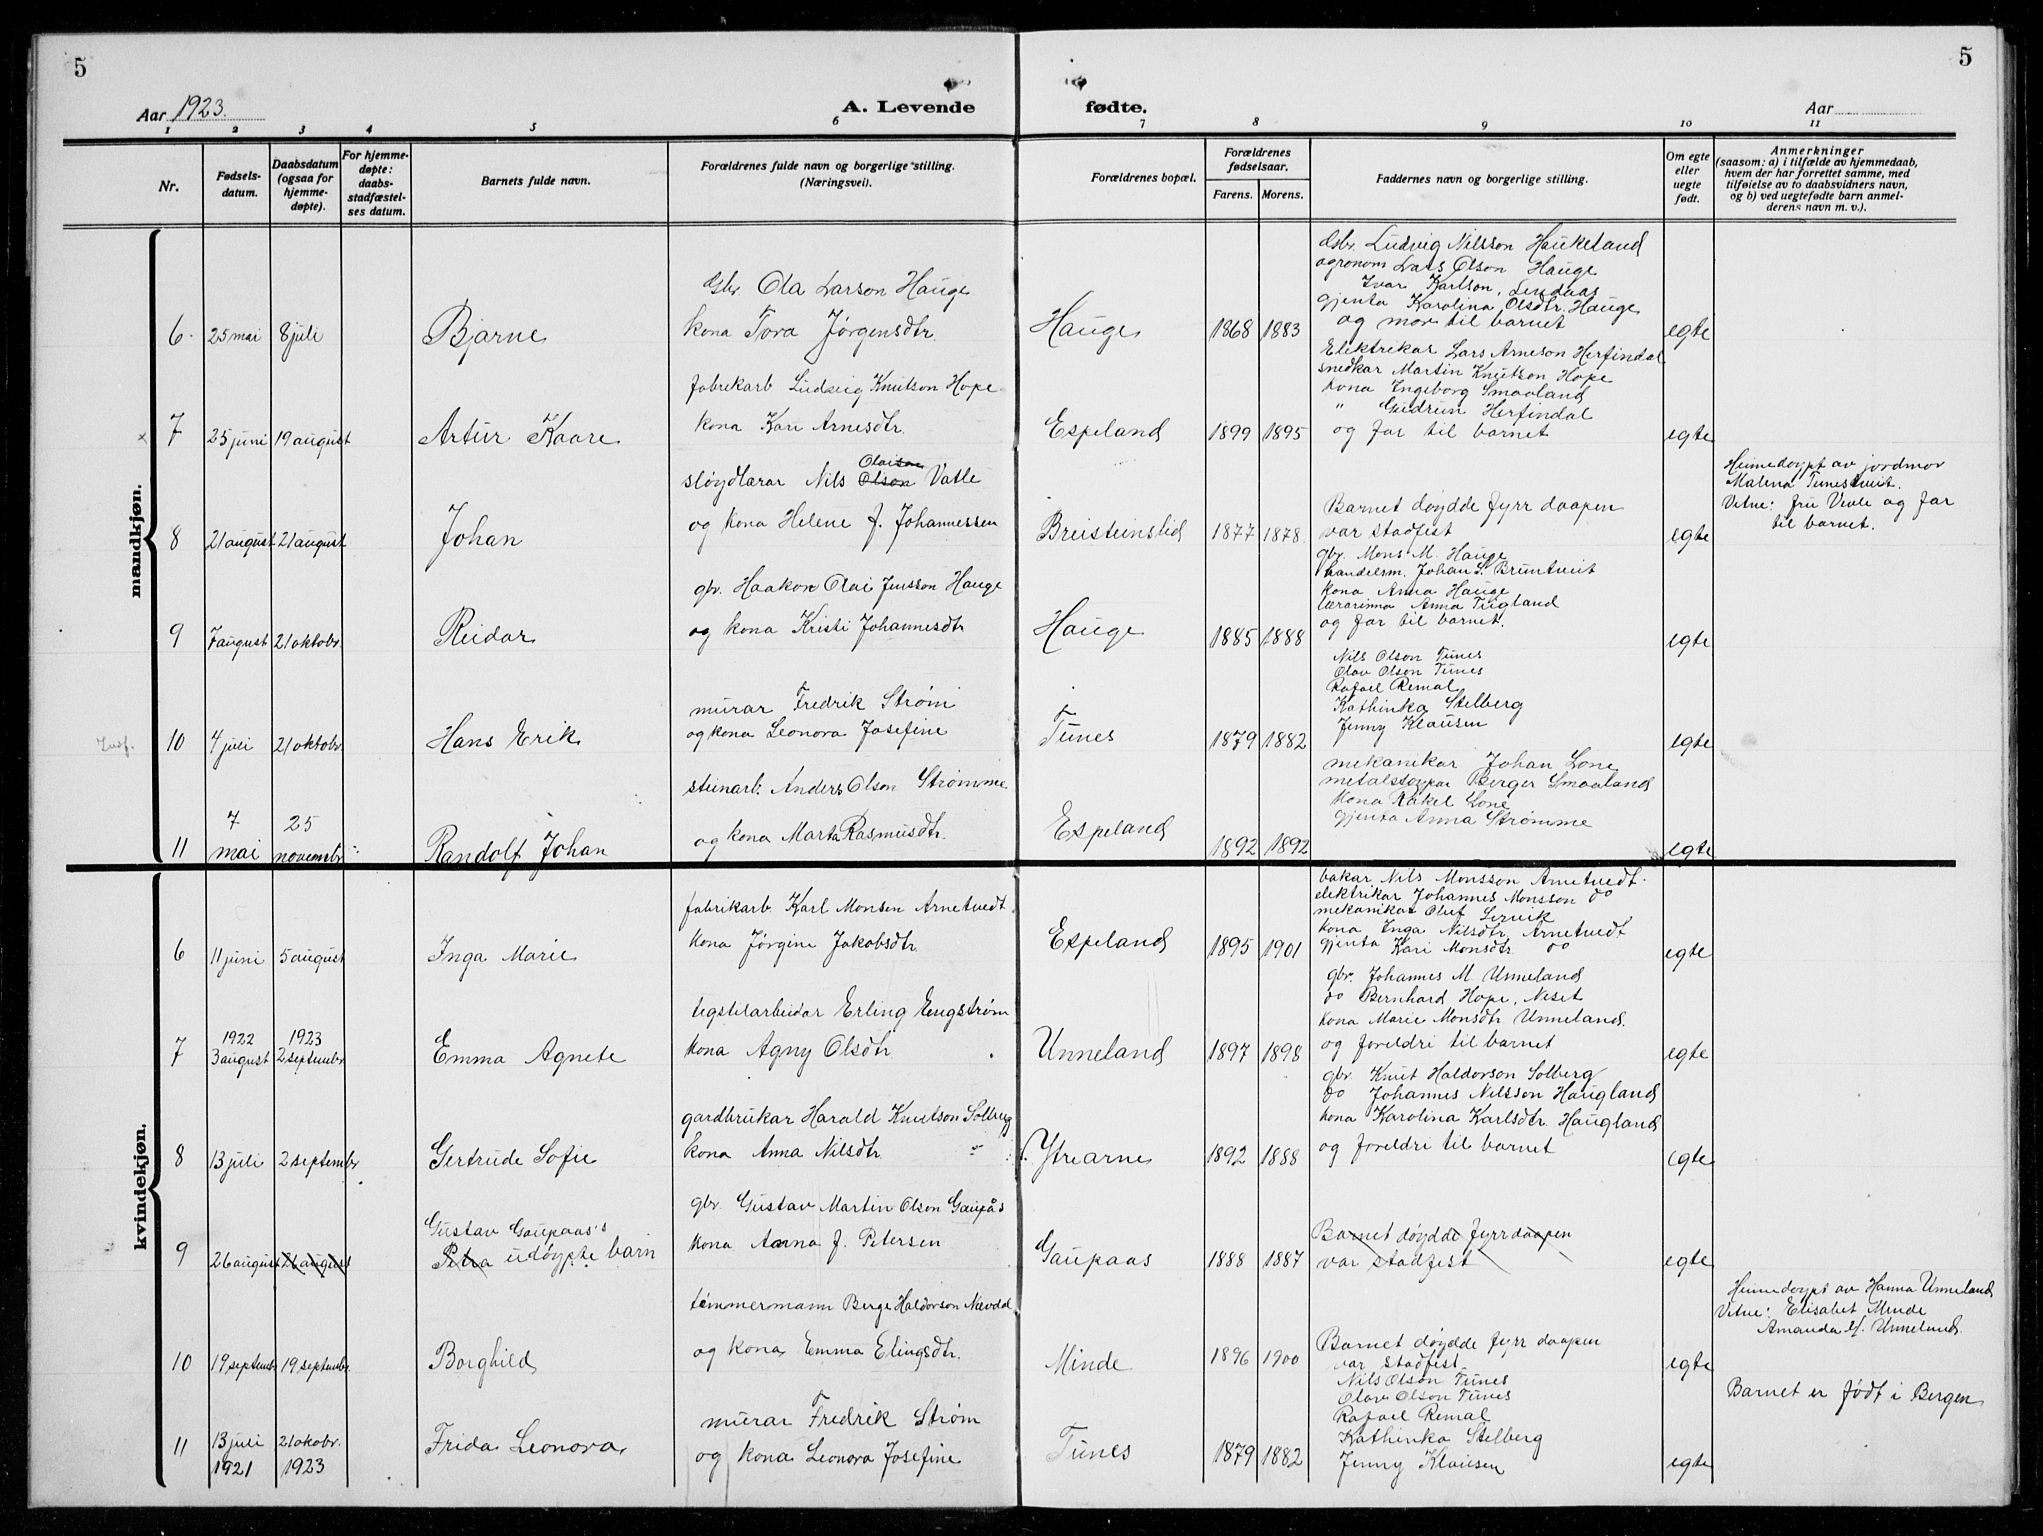 5
5
Aar 1923.
A. Levende
fødte.
Aar
1 2 3 4 5 6 7 8 9 10 11
Nr.
Fødsels-
datum.
Daabsdatum
(ogsaa for
hjemme-
døpte).
For hjemme-
døpte:
daabs-
stadfæstel-
ses datum.
Barnets fulde navn.
Forældrenes fulde navn og borgerlige stilling.
(Næringsvei).
Forældrenes bopæl.
Forældrenes
fødselsaar.
Farens. Morens.
Faddernes navn og borgerlige stilling.
Om egte
eller
uegte
født.
Anmerkninger
(saasom: a) i tilfælde av hjemmedaab,
hvem der har forrettet samme, med
tilføielse av to daabsvidners navn,
og b) ved uegtefødte barn anmel-
derens navn m. v.).
mandkjøn.
6 25 mai 8 juli
Bjarne
Gbr. Ola Larson Hauge
kona Tora Jørgensdtr
Hauge
1868 1883
Gbr. Ludvig Nilsson Haukeland
agronom Lars Olson Hauge
Ivar Karlson, Lindaas
gjenta Karolina Olsdtr. Hauge
og mor til barnet
egte
x 7 25 juni 19 august
Artur Kaare
fabrikarb Ludvig Knutson Hope
kona Kari Arnesdtr.
Espeland
1899 1895
Elektrikar Lars Arneson Herfindal
snedkar Martin Knutson Hope
kona Ingeborg Smaaland
" Gudrun Herfindal
og far til barnet
egte
8 21 august 21 august
Johan
sløydlærar Nils Olson Olaison Vatle
og kona Helene f. Johannessen
Breisteinslid
1877 1878.
Barnet døydde fyrr daapen
var stadfest
egte
Heimedøypt av jordmor
Malena Tunestveit.
Vitne: fru Vevle og far
til barnet.
9 7 august 21 oktobr.
Reidar
gbr. Haakon Olai Jensson Hauge
og kona Kristi Johannesdtr
Hauge
1885 1888
gbr. Mons M. Hauge
handelsm. Johan S. Bruntveit
kona Anna Hauge
lærarinna Anna Tugland
og far til barnet.
egte
10 4 juli 21 oktobr.
Hans Erik
murar Fredrik Strøm
og kona Leonora Josefine
Tunes
1879 1882
Nils Olson Tunes
Olav Olson Tunes
Rafael Remal
Kathinka Stelberg
Jenny Klausen
egte
11 7 mai 25 novembr.
Randolf Johan
steinarb. Anders Olson Strømme
og kona Marta Rasmusdtr.
Espeland
1892 1892
mekanikar Johan Lone
metalstøypar Berger Smaaland
kona Rakel Lone
gjenta Anna Strømme
egte
kvindekjøn.
6 11 juni 5 august
Inga Marie
fabrikarb. Karl Monsen Arnetvedt
kona Jørgine Jakobsdtr
Espeland
1895 1901
bakar Nils Monsson Arnetvedt
elektrikar Johannes Monsson do
mekanikar Oluf Lervik
kona Inga Nilsdtr. Arnetvedt
gjenta Kari Monsdtr do
egte
7 1922 3 august 1923 2 septembr
Emma Agnete
tegstilarbeidar Erling Engstrøm
kona Agny Olsdtr
Unneland
1897 1898
gbr. Johannes M. Unneland
do Bernhard Hope, Neset
kona Marie Monsdtr Unneland.
og foreldri til barnet
egte
8 13 juli 2 septembr
Gertrude Sofie
gardbrukar Harald Knutson Solberg
kona Anna Nilsdtr "
Ytrearne
1892 1888
gbr. Knut Haldorson Solberg
do Johannes Nilsson Haugland
kona Karolina Karlsdtr Haugland
og foreldri til barnet
egte
9 26 august 26 august
Gustav Gaupaas's
Petra udøypte barn
gbr. Gustav Martin Olson Gaupås
kona Anna f. Petersen
Gaupaas
1888 1887
Barnet døydde fyrr daapen
var stadfest
egte
10 19 septembr 19 septembr.
Borghild
tømmermann Berge Haldorson Nævdal
og kona Emma Elingsdtr.
Minde
1896 1900
Barnet døydde fyrr daapen
var stadfest
egte
Heimedøypt av Hanna Unneland
Vitne: Elisabet Minde
Amanda M. Unneland.
11 13 juli 1921 21 okobr. 1923
Frida Leonora
murar Fredrik Strøm
og kona Leonora Josefine
Tunes
1879 1882
Nils Olson Tunes
Olav Olson Tunes
Rafael Remal
Kathinka Stelberg
Jenny Klausen
egte
Barnet er født i Bergen